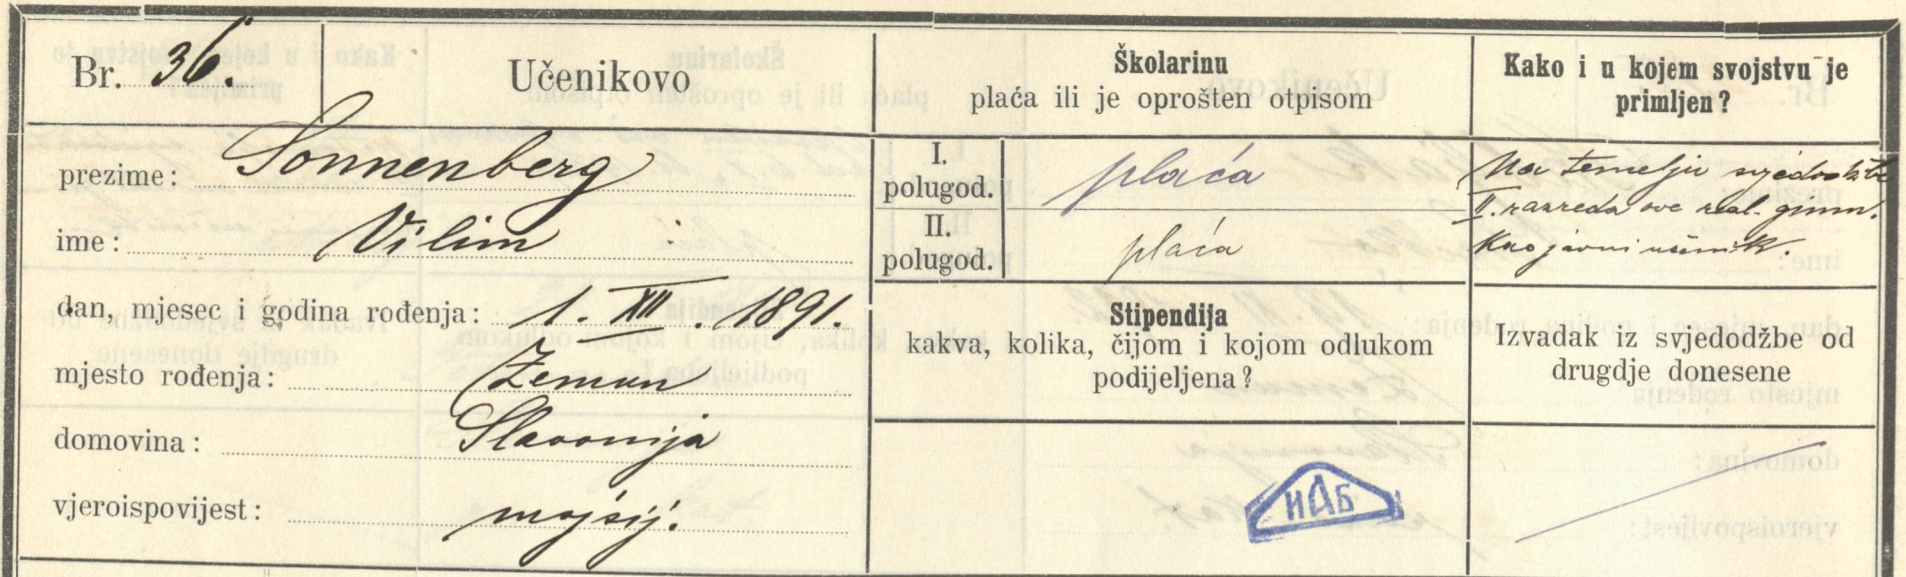 Br. 36.
Učenikovo
prezime: Sonnenberg
ime: Vilim
dan, mjesec i godina rođenja: 1. XII. 1891.
mjesto rođenja: Zemun
domovina: Slavonija
vjeroispovijest: mojsij.
Školarinu
plaća ili je oprošten otpisom
I.
polugod. plaća
II.
polugod. plaća
Stipendija
kakva, kolika, čijom i kojom odlukom
podijeljena?
ИАБ
Kako i u kojem svojstvu je
primljen?
Na temelju svjedodžbe
II. razreda ove real. gimn.
kao javni učenik.
Izvadak iz svjedodžbe od
drugdje donesene